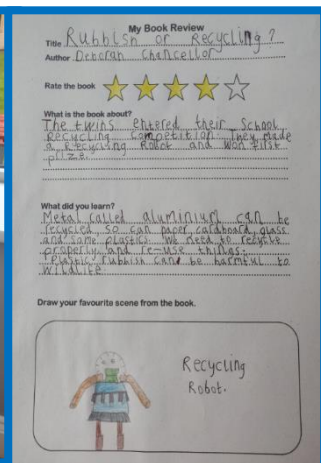 My Book Review
Title Rubbish or Recycling?
Author Deborah Chancellor
Rate the book
What is the book about?
The twins entered their School
Recycling Competition. They made
a Recycling Robot and won first
prize.
What did you learn?
Metal called aluminium can be
recycled, so can paper, cardboard, glass
and some plastics. We need to recycle
properly and re-use things.
Plastic rubbish can be harmful to
wildlife.
Draw your favourite scene from the book.
Recycling
Robot.